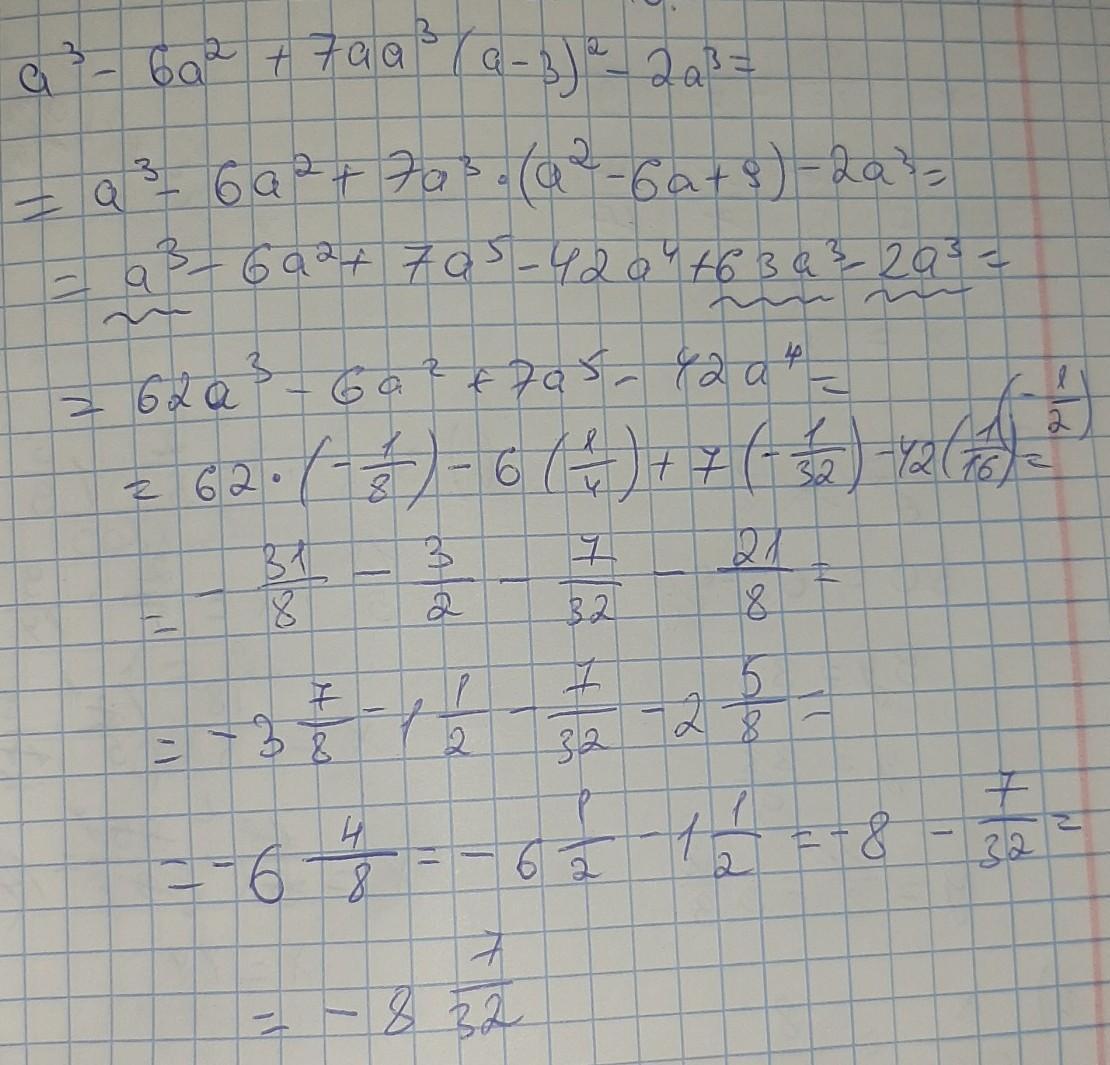 a³ - 6a² + 7aa³ (a - 3)² - 2a³ =
= a³ - 6a² + 7a³ · (a² - 6a + 9) - 2a³ =
= a³ - 6a² + 7a⁵ - 42a⁴ + 63a³ - 2a³ =
= 62a³ - 6a² + 7a⁵ - 42a⁴ = (-1/2)
= 62 · (-1/8) - 6 (1/4) + 7 (-1/32) - 42 (1/16) =
= - 31/8 - 3/2 - 7/32 - 21/8 =
= - 3 7/8 - 1 1/2 - 7/32 - 2 5/8 =
= - 6 4/8 = - 6 1/2 - 1 1/2 = - 8 - 7/32 =
= - 8 7/32